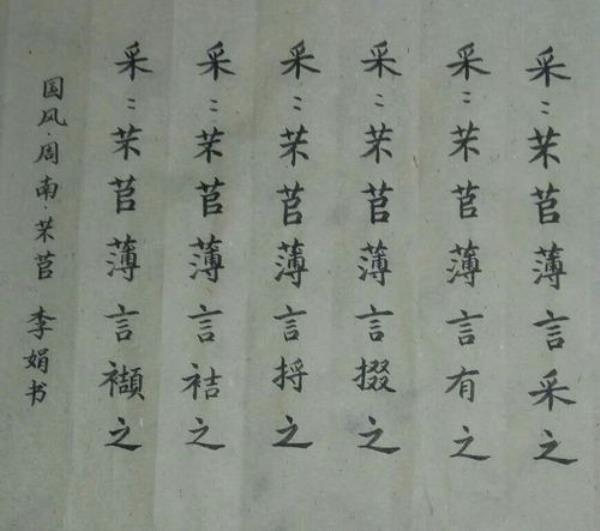 采：芣苢薄言采之
采：芣苢薄言有之
采：芣苢薄言掇之
采：芣苢薄言捋之
采：芣苢薄言袺之
采：芣苢薄言襭之
国风·周南·芣苢 李娟书